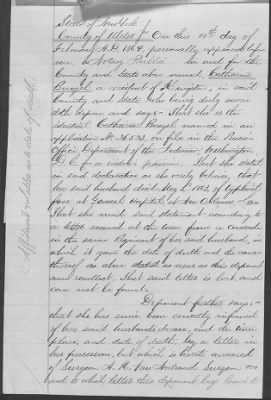 State of New York
County of Ulster } On this 10th day of
February A.D. 1864, personally appeared before
me a Notary Public in and for the
County and State above named, Catharine
a resident of Kingston, in said
County and State who being duly sworn
deposes and says - That she is the
identical Catharine named in an
application No. on file in the Pension
Office Department of the Interior, Washington
D.C. for a widows pension. That she stated
in said declaration as she verily believes, that
her said husband died May 1863, of Typhoid
fever at Hospital, at New Orleans, La.
That she made said statement according to
a letter received at the time from a comrade
in the same Regiment of her said husband, in
which it gave the date of death and the cause
thereof as above stated as near as this deponent
can recollect. That said letter is lost and
can not be found.
Deponent further says:-
that she has since been correctly informed
of her said husbands decease, and the time
place and date of death, by a letter in
her possession, but which is hereto annexed
of Surgeon A. K. Van
and to which letter this deponent begs leave to
Affidavit
as to date of death.